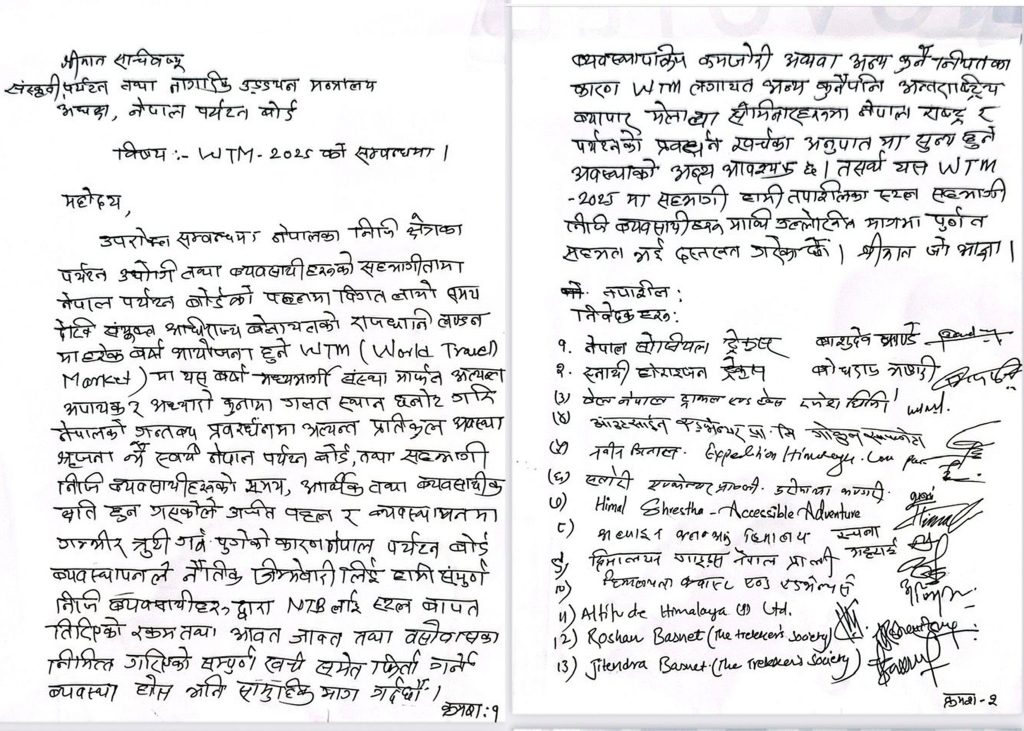 श्रीमान सचिवज्यू
संस्कृती पर्यटन तथा नागरिक उड्डयन मन्त्रालय
अध्यक्ष, नेपाल पर्यटन बोर्ड
विषय :- WTM - 2025 को सम्बन्धमा।
महोदय,
उपरोक्त सम्बन्धमा नेपालका निजि क्षेत्रका
पर्यटन उद्योगी तथा व्यवसायीहरुको सहभागीतामा
नेपाल पर्यटन बोर्डको पहलमा विगत लामो समय
देखि संयुक्त अधिराज्य बेलायतको राजधानी लण्डन
मा हरेक बर्ष आयोजना हुने WTM (World Travel
Market) मा यस बर्ष मध्यमार्गी संस्था मार्फत अत्यन्त
अपायक र अध्यारो कुनामा गलत स्थान छनोट गरि
नेपालको गन्तब्य प्रवर्धनमा अत्यन्त प्रतिकुल अवस्था
श्रृजना भै स्वयं नेपाल पर्यटन बोर्ड, तथा सहभागी
निजि व्यवसायीहरुको समय, आर्थिक तथा व्यवसायीक
क्षति हुन गएकोले उचित पहल र व्यवस्थापनमा
गम्भीर त्रुटी गर्न पुगेको कारण नेपाल पर्यटन बोर्ड
व्यवस्थापनले नैतीक जिम्मेवारी लिई हामी संपुर्ण
निजि व्यवसायीहरु द्वारा NTB लाई स्टल बापत
तिरिएको रकम तथा आवत जावत तथा बसोवासका
निमित्त गरिएको सम्पुर्ण खर्च समेत फिर्ता गर्ने
व्यवस्था होस भनि सामुहिक माग गर्दछौं।
क्रमश: १
व्यवस्थापकिय कमजोरी अथवा अन्य कुनै नियतका
कारण WTM लगायत अन्य कुनैपनि अन्तराष्ट्रिय
व्यापार मेला वा सेमिनारहरुमा नेपाल राष्ट्र र
पर्यटनको प्रवर्धन खर्चका अनुपात मा सुन्य हुने
अवस्थाको अन्त्य आवश्यक छ। तसर्थ यस WTM
-2025 मा सहभागी हामी तपशिलका स्टल सहभागी
निजि व्यवसायीहरु माथि उल्लेखित मागमा पुर्णत
सहमत भई दस्तखत गरेका छौं। श्रीमान जो आज्ञा।
तपशील :
निवेदक हरु:
१. नेपाल सोसियल ट्रेक्स बासुदेव पाण्डे
२. स्नायी होराइजन ट्रेक्स
(३) वेल नेपाल ट्राभल एण्ड
(४) आउटसाईड एडभेन्चर प्रा. लि
(५) Expedition Himalaya. Com
(६)
(७) Himal Shrestha - Accessible Adventure
८) हिमालय
९) हिमालयन गाइड्स नेपाल प्रा.ली
१०) हिमालयन एण्ड एडभेन्चर्स
11) Altitude Himalaya (P) Ltd.
12) Roshan Basnet (The Trekker's Society)
13) Jitendra Basnet (The Trekker's Society)
क्रमश - २